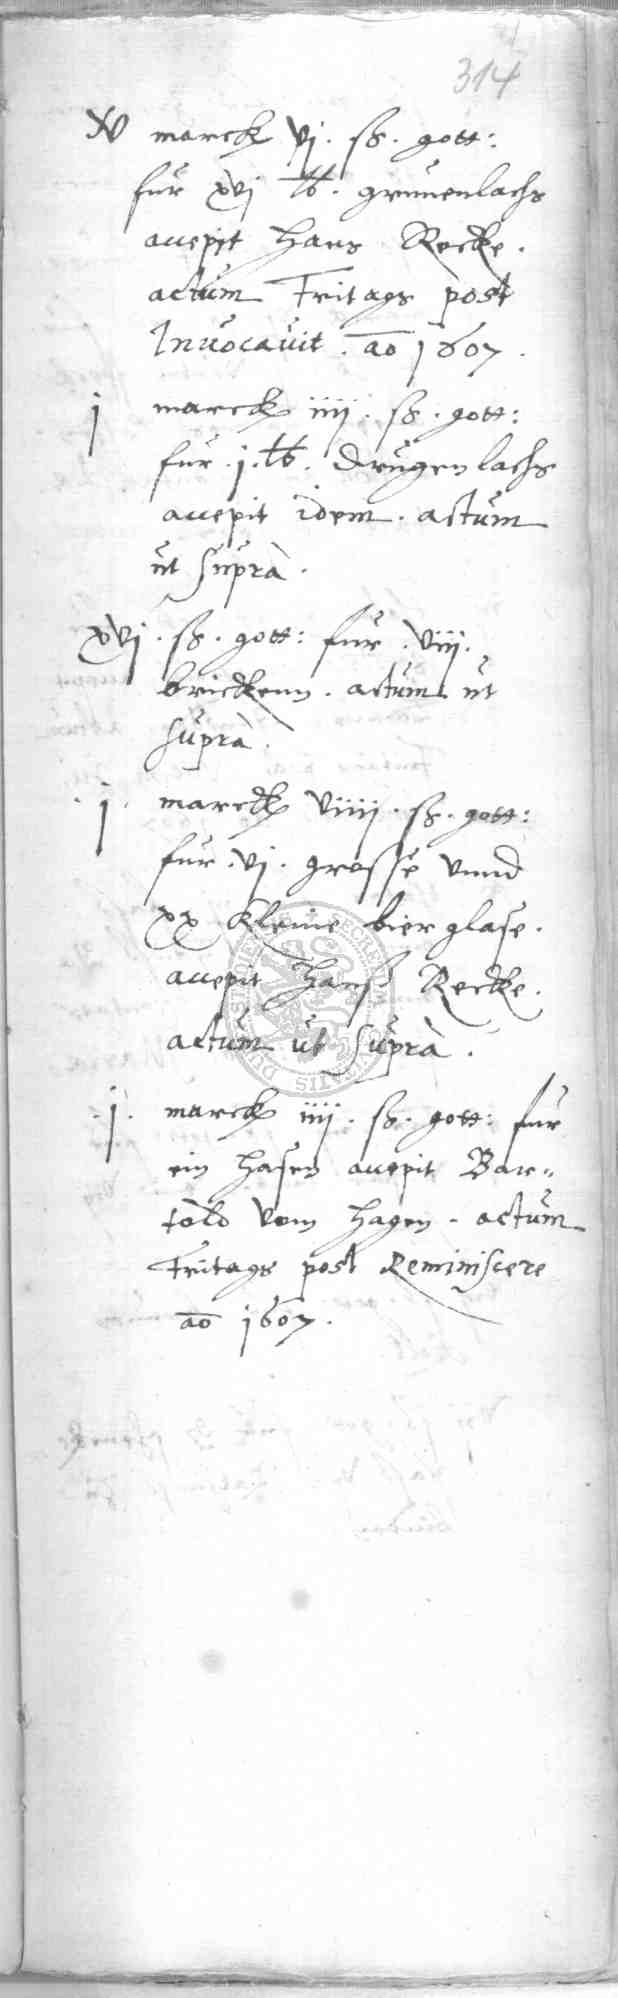 314
xv marck vj. ß. gott:
für xvj lb. grunenlachs
accepit Hans Recke.
actum Fritags post
Invocavit. ao 1607.
j marck iiij. ß. gott:
für. j. lb. drugenlachs
accepit idem. actum
ut suprà.
xvj. ß. gott: für. viij.
brickenn. actum ut
suprà.
.j. marck viiij. ß. gott:
für. vj. grosse vnnd
xx kleine bierglase.
accepit Hanß Recke.
actum ut suprà.
.j. marck iiij. ß. gott: für
ein hasen accepit Bar=
told vom Hagen. actum
Fritags post Reminiscere
ao 1607.